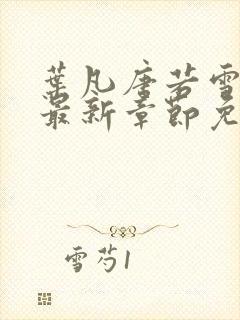 葉凡唐若雪
最新章節免
雪芍1